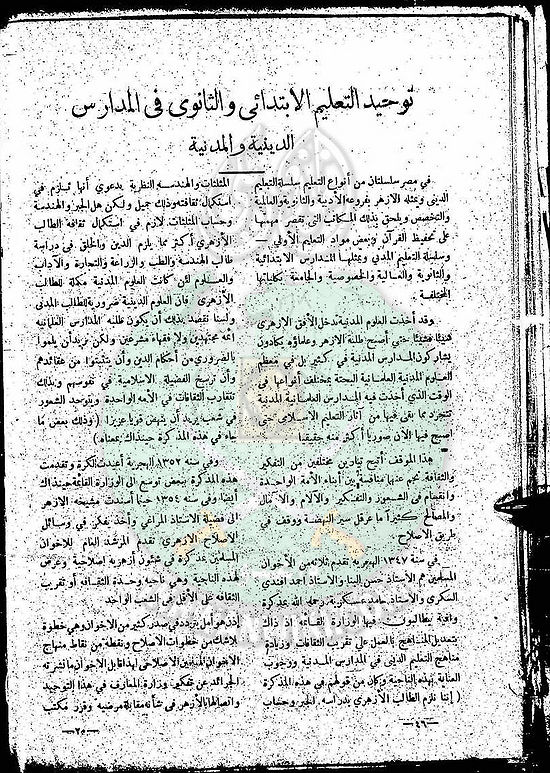 توحيد التعليم الابتدائي والثانوي في المدارس
الدينية والمدنية
في مصر سلسلتان من أنواع التعليم سلسلة التعليم
الديني ويمثله الازهر بفروعه الأدبية والثانوية والعالمية
والتخصص ويلحق بذلك المكاتب التي تقصر مهمتها
على تحفيظ القرآن وبعض مواد التعليم الأولي —
وسلسلة التعليم المدني ويمثلها المدارس الابتدائية
والثانوية والعالية والخصوصية والجامعة بكلياتها
المختلفة.
وقد أخذت العلوم المدنية تدخل الأفق الازهري
شيئا فشيئا حتى أصبح طلبة الازهر وعلماؤه يكادون
يشاركون المدارس المدنية في كثير بل في معظم
العلوم المدنية العلمانية البحتة بمختلف أنواعها في
الوقت الذي أخذت فيه المدارس العلمانية المدنية
تتجرد مما بقى فيها من آثار التعليم الاسلامي حتى
اصبح فيها الآن صوريا أكثر منه حقيقيا
هذا الموقف أنتج تيارين مختلفين من التفكير
والثقافة نجم عنها منافسة بين أبناء الأمة الواحدة
وانقسام في الشعور والتفكير والآلام والآمال
والمصالح كثيرا ما عرقل سير النهضة ووقف في
طريق الاصلاح
في سنة ١٣٤٧ الهجرية تقدم ثلاثة من الأخوان
المسلمين هم الأستاذ حسن البنا والاستاذ احمد افندى
السكري والاستاذ حامد عسكرية رحمه الله بمذكرة
وافية يطالبون فيها الوزارة القائمة اذ ذاك
بتعديل المناهج بالعمل على تقريب الثقافات وزيادة
مناهج التعليم الديني في المدارس المدنية ووجوب
العناية بهذه الناحية وكان من قولهم في هذه المذكرة
( إننا نلزم الطالب الأزهري بدراسة الجبر وحساب
المثلثات والهندسة النظرية بدعوى أنها تلزم في
استكمال ثقافته وذلك جميل ولكن هل الجبر والهندسة
وحساب المثلثات لازم في استكمال ثقافة الطالب
الأزهري أكثر مما يلزم الدين والخلق في دراسة
طالب الهندسة والطب والزراعة والتجارة والآداب
والعلوم لئن كانت العلوم المدنية مكملة للطالب
الأزهري فان العلوم الدينية ضرورية للطالب المدني
ولسنا نقصد بذلك أن يكون طلبة المدارس العلمانية
ائمة مجتهدين ولا فقهاء مشرعين ولكن نريد أن يلموا
بالضروري من أحكام الدين وأن يتثبتوا من عقائدهم
وأن ترسخ الفضيلة الاسلامية في نفوسهم وبذلك
تتقارب الثقافات في الأمة الواحدة ويتوحد الشعور
في شعب يريد أن ينهض قويا عزيزا ) وذلك بعض ما
جاء في هذه المذكرة حينذاك بمعناه )
وفي سنه ١٣٥٢ الهجرية أعيدت الكرة وتقدمت
هذه المذكرة ببعض توسع الى الوزارة القائمة حينذاك
أيضا، وفي سنه ١٣٥٤ حينما أسندت مشيخه الازهر
الى فضيلة الاستاذ المراغي وأخذ يفكر في وسائل
الاصلاح الأزهري تقدم المرشد العام للاخوان
المسلمين بمذكرة في شئون أزهرية اصلاحية وعرض
لهذه الناحية وهي ناحيه وحدة الثقافه أو تقريب
الثقافه على الأقل في الشعب الواحد
إذن هو أمل يتردد في صدر كثير من الأخوان وهي خطوة
لاشك من خطوات الاصلاح ونقطة من نقاط منهاج
الاخوان المسلمين الاصلاحى لهذا قابل الاخوان ما نشرته
الجرائد عن تفكير وزارة المعارف في هذا التوحيد
واتصالها بالأزهر في شأنه مقابلة مرضيه وقرر مكتب
— ٤٦ —
— ٢٥ —